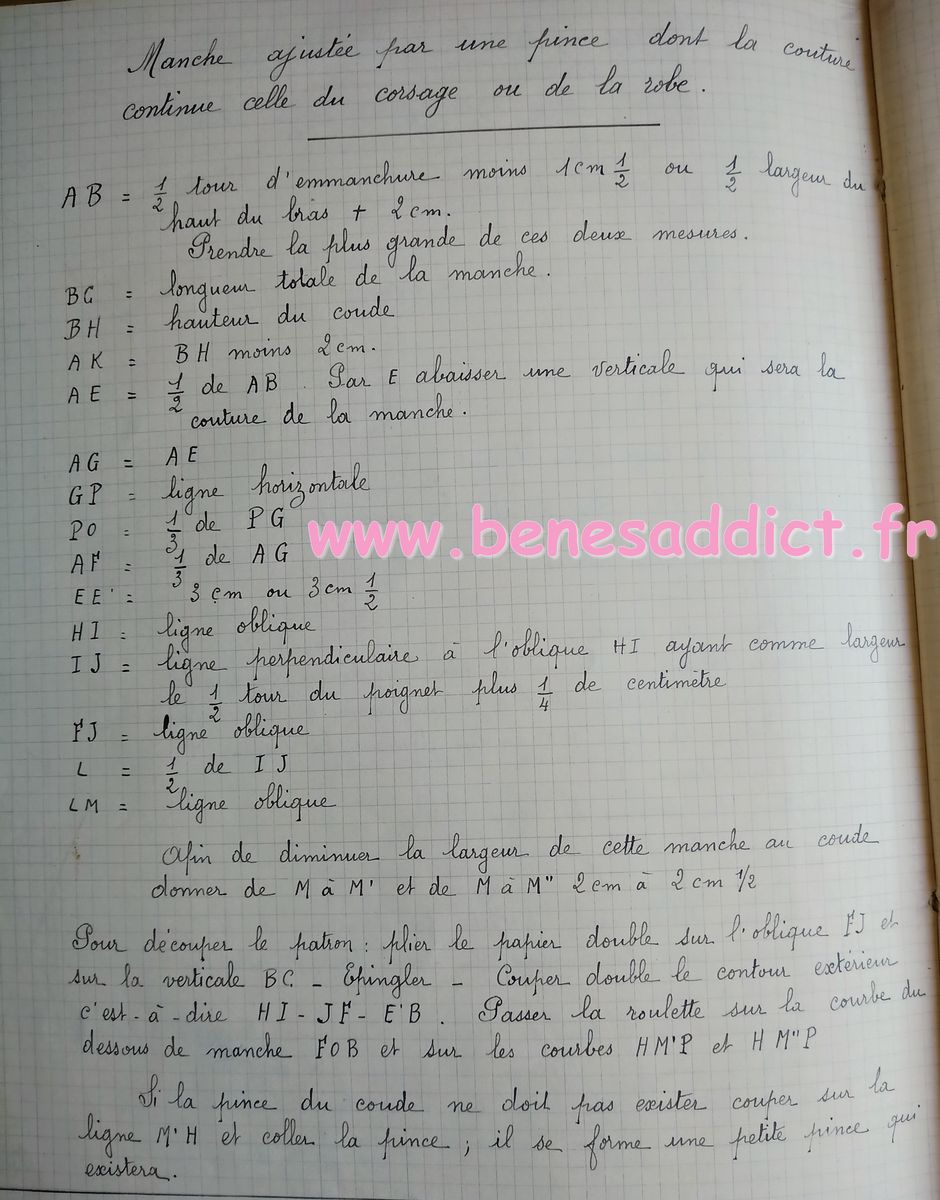 Manche ajustée par une pince dont la couture
continue celle du corsage ou de la robe.
AB = 1/2 tour d'emmanchure moins 1cm 1/2 ou 1/2 largeur du
haut du bras + 2cm.
Prendre la plus grande de ces deux mesures.
BC = longueur totale de la manche.
BH = hauteur du coude
AK = BH moins 2cm.
AE = 1/2 de AB. Par E abaisser une verticale qui sera la
couture de la manche.
AG = AE
GP = ligne horizontale
PO = 1/3 de PG
AF = 1/3 de AG
www.benesaddict.fr
EE' = 3 cm ou 3cm 1/2
HI = ligne oblique
IJ = ligne perpendiculaire à l'oblique HI ayant comme largeur
le 1/2 tour du poignet plus 1/4 de centimètre
FJ = ligne oblique
L = 1/2 de IJ
LM = ligne oblique
Afin de diminuer la largeur de cette manche au coude
donner de M à M' et de M à M" 2cm à 2cm 1/2
Pour découper le patron : plier le papier double sur l'oblique FJ et
sur la verticale BC - Epingler - Couper double le contour extérieur
c'est-à-dire HI - JF - E'B. Passer la roulette sur la courbe du
dessous de manche FOB et sur les courbes HM'P et HM"P
Si la pince du coude ne doit pas exister couper sur la
ligne M'H et coller la pince ; il se forme une petite pince qui
existera.